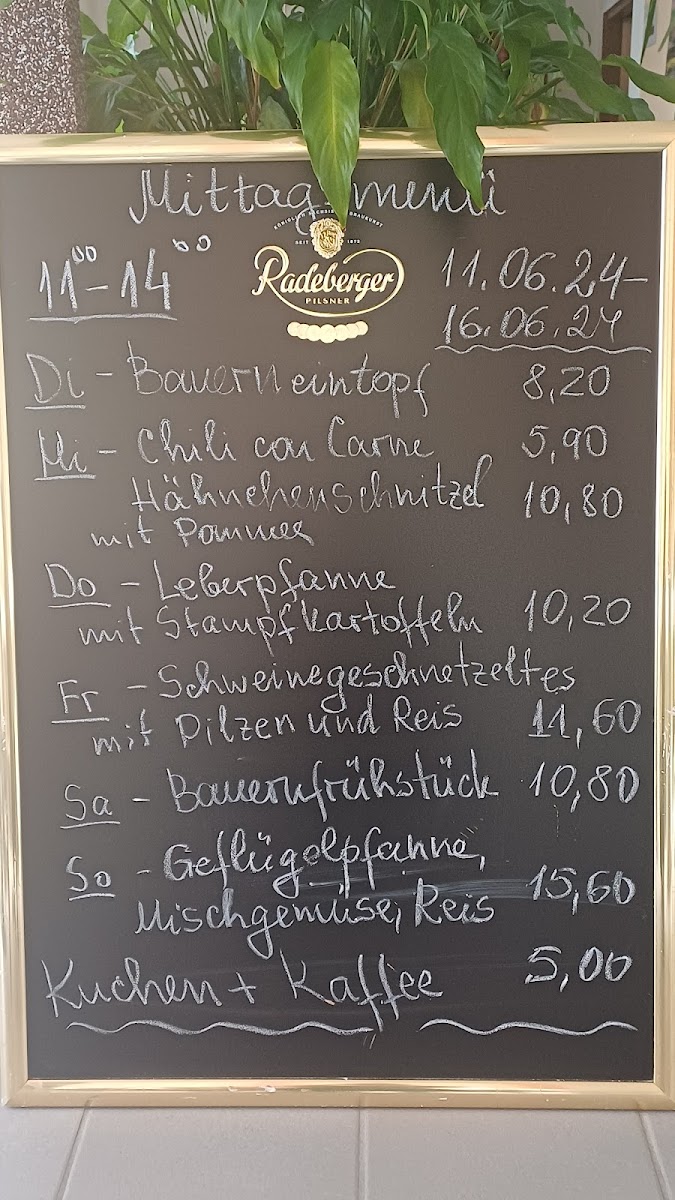 Mittagsmenü
KÖNIGLICH SÄCHSISCHE BRAUKUNST
SEIT 1872
Radeberger
PILSNER
11⁰⁰ - 14⁰⁰
11.06.24-
16.06.24
Di - Bauerneintopf 8,20
Mi - Chili con Carne 5,90
Hähnchenschnitzel 10,80
mit Pommes
Do - Leberpfanne
mit Stampfkartoffeln 10,20
Fr - Schweinegeschnetzeltes
mit Pilzen und Reis 11,60
Sa - Bauernfrühstück 10,80
So - Geflügelpfanne,
Mischgemüse, Reis 15,60
Kuchen + Kaffee 5,00